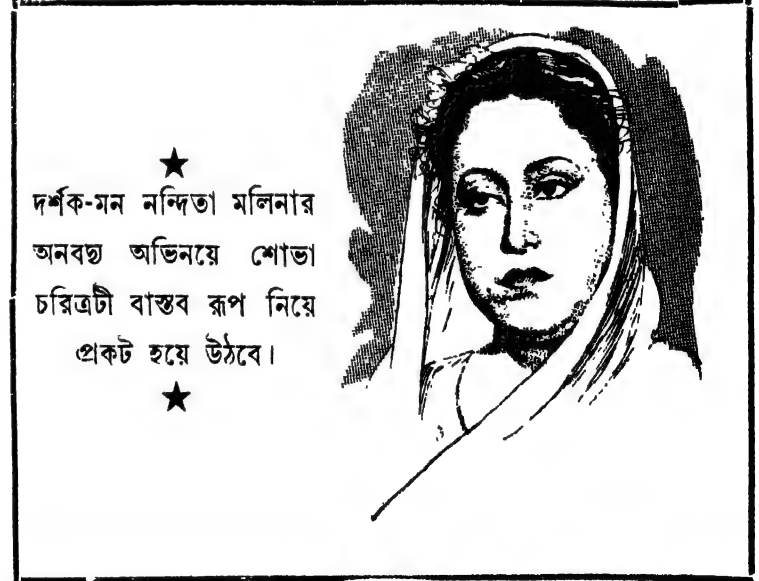 ★
দর্শক-মন নন্দিতা মলিনার
অনবদ্য অভিনয়ে শোভা
চরিত্রটী বাস্তব রূপ নিয়ে
প্রকট হয়ে উঠবে।
★